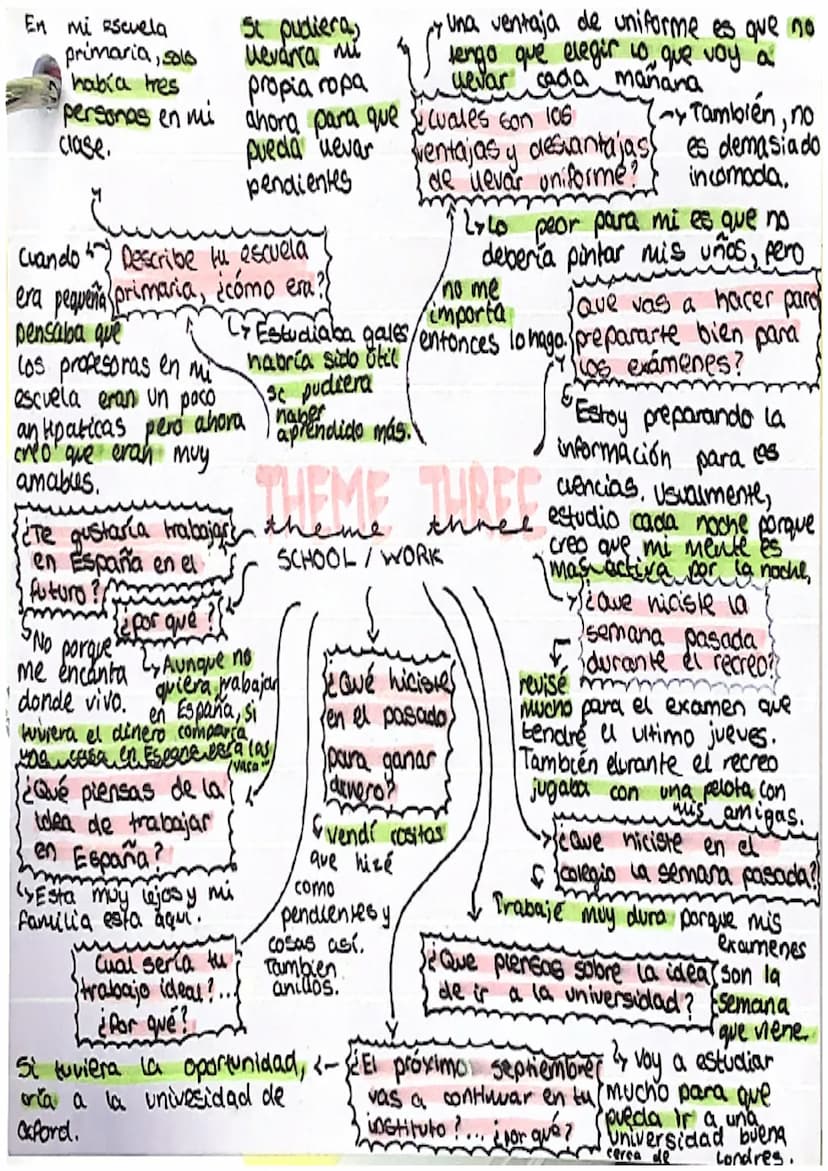 En mi escuela
primaria, solo
había tres
personas en mi
clase.
Si pudiera,
llevaría mi
propia ropa
ahora para que
pueda llevar
pendientes
Una ventaja de uniforme es que no
tengo que elegir lo que voy a
llevar cada mañana
¿Cuales son los
ventajas y desvantajas
de llevar uniforme?
También, no
es demasiado
incomoda.
Lo peor para mi es que no
debería pintar mis uños, pero
no me
importa
entonces lo hago.
Describe tu escuela
primaria, ¿cómo era?
Cuando
era pequeña
pensaba que
los profesoras en mi
escuela eran un poco
antipaticas pero ahora
creo que eran muy
amables.
Estudiaba gales
habría sido útil
se pudiera
haber
aprendido más.
Que vas a hacer para
prepararte bien para
los exámenes?
Estoy preparando la
información para las
ciencias. Usualmente,
estudio cada noche porque
creo que mi mente es
mas activa por la noche,
THEME THREE
theme three
SCHOOL / WORK
¿Te gustaría trabajar
en España en el
futuro?
¿por qué?
No porque
me encanta
donde vivo.
Aunque no
quiera trabajar
en España, si
tuviera el dinero compraría
una casa en España para las
vaca
¿Que hiciste la
semana pasada
durante el recreo?
revisé
mucho para el examen que
tendré el ultimo jueves.
También durante el recreo
jugaba con una pelota con
mis amigas.
¿Qué hiciste
en el pasado
para ganar
dinero?
vendí cositas
que hizé
como
pendientes y
cosas así.
Tambien
anillos.
¿Qué piensas de la
idea de trabajar
en España?
Esta muy lejos y mi
familia esta aqui.
¿Que hiciste en el
colegio la semana pasada?
Trabajé muy duro porque mis
examenes
son la
semana
que viene
Cual sería tu
trabajo ideal?...
¿Por qué?
¿Que piensas sobre la idea
de ir a la universidad?
Voy a estudiar
mucho para que
pueda ir a una
universidad buena
cerca de Londres.
¿El próximo septiembre
vas a continuar en tu
instituto?... ¿por qué?
Si tuviera la oportunidad,
iría a la univesidad de
oxford.